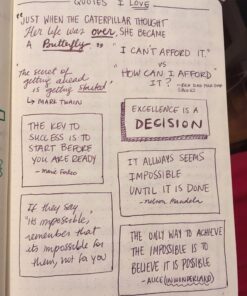 QUOTES I LOVE
"JUST WHEN THE CATERPILLAR THOUGHT
Her life was over, SHE BECAME
A Butterfly"
"The secret of
getting ahead
is getting started"
↳ MARK TWAIN
"I CAN'T AFFORD IT."
VS
"HOW CAN I AFFORD
IT?"
-RICH DAD POOR DAD
(BOOK)
EXCELLENCE IS A
DECISION
THE KEY TO
SUCCESS IS TO
START BEFORE
YOU ARE READY
- Marie Forleo
IT ALLWAYS SEEMS
IMPOSSIBLE
UNTIL IT IS DONE
- Nelson Mandela
If they say
"its impossible,"
remember that
its impossible for
them, not for you
THE ONLY WAY TO ACHIEVE
THE IMPOSSIBLE IS TO
BELIEVE IT IS POSIBLE
- ALICE (IN WONDERLAND)